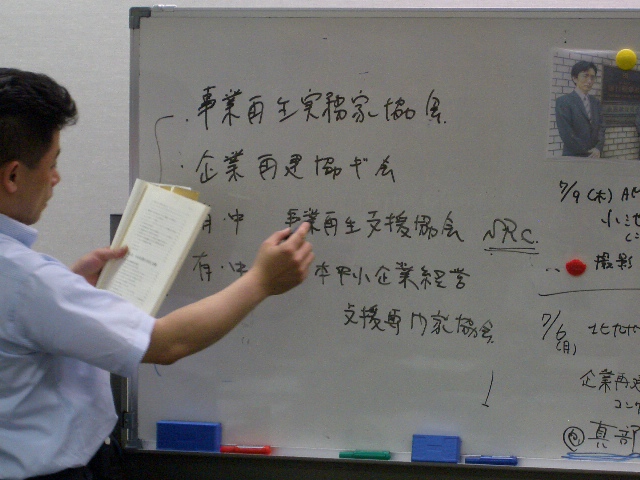 ・事業再生実務家協会
・企業再建協ギ会
有・中 事業再生支援協会 SRC.
有・中 本中小企業経営
支援専門家協会
7/9(木)
撮影
7/6(月)
企業再建
コン
真部